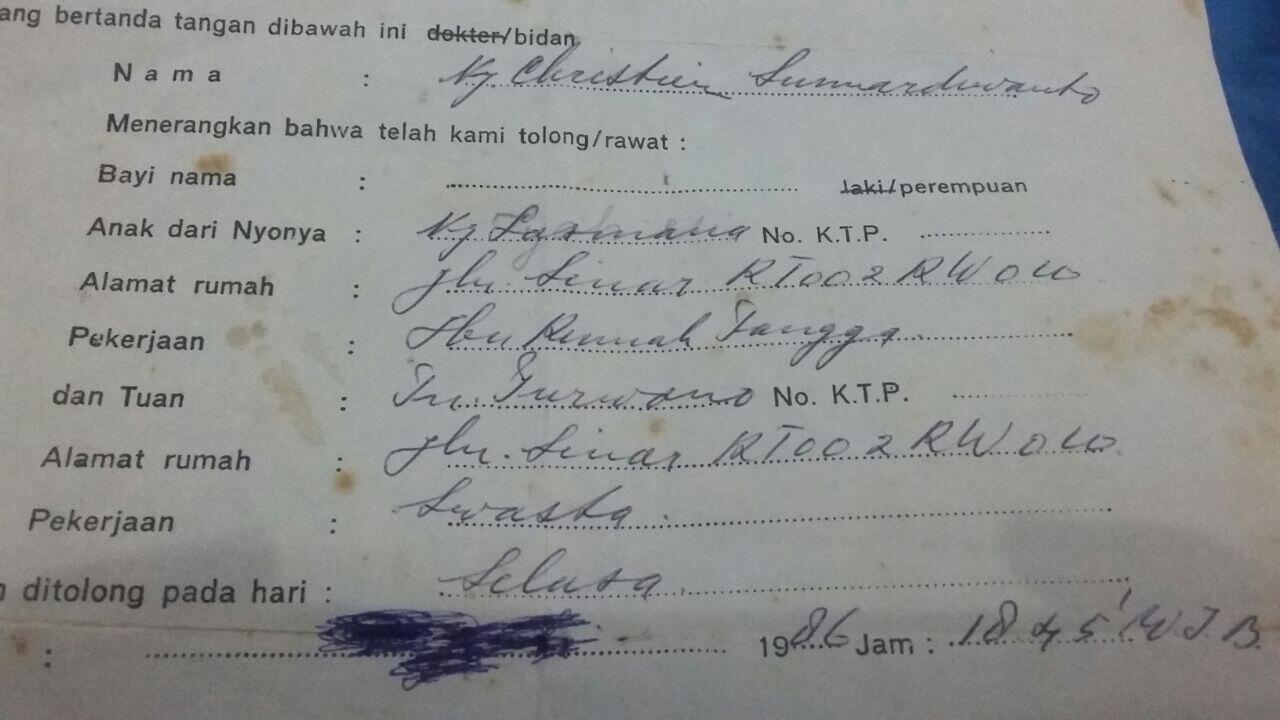 ang bertanda tangan dibawah ini dokter/bidan
Nama : Ny. Christien Sunnardwanto
Menerangkan bahwa telah kami tolong/rawat :
Bayi nama : laki/perempuan
Anak dari Nyonya : Ny No. K.T.P.
Alamat rumah : Jln. Sinar RT002 RW 010
Pekerjaan : Ibu Rumah Tangga
dan Tuan : Tn. No. K.T.P.
Alamat rumah : Jln. Sinar RT002 RW 010
Pekerjaan : Swasta
ditolong pada hari : Selasa
: 1986 Jam : 18.45' W.I.B.